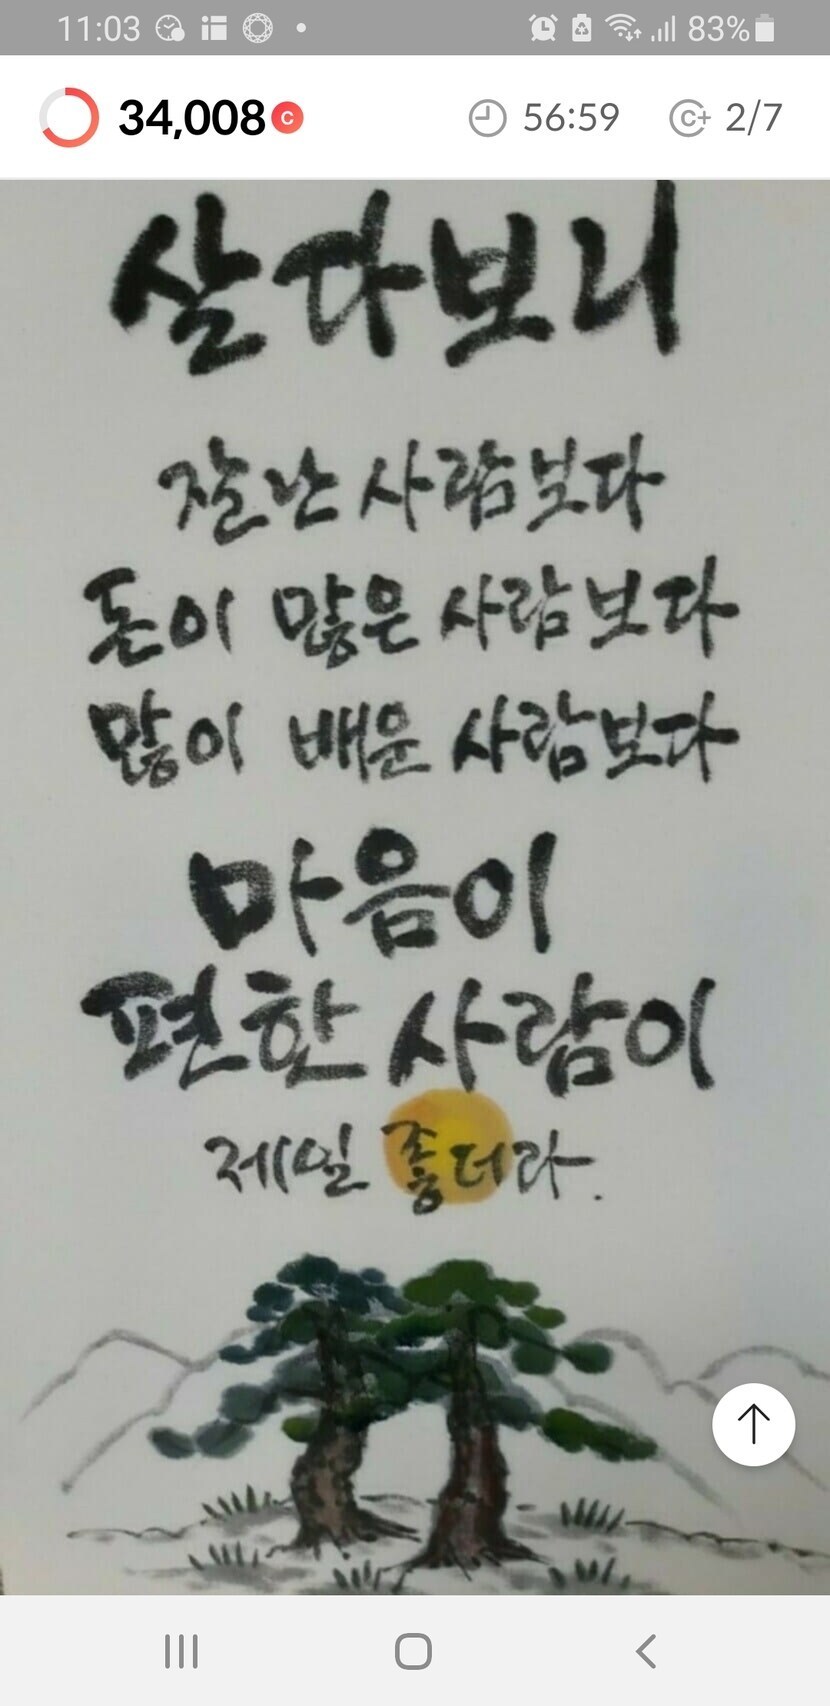 11:03 83%
34,008 C 56:59 C+ 2/7
살다보니
잘난 사람보다
돈이 많은 사람보다
많이 배운 사람보다
마음이
편한 사람이
제일 좋더라.